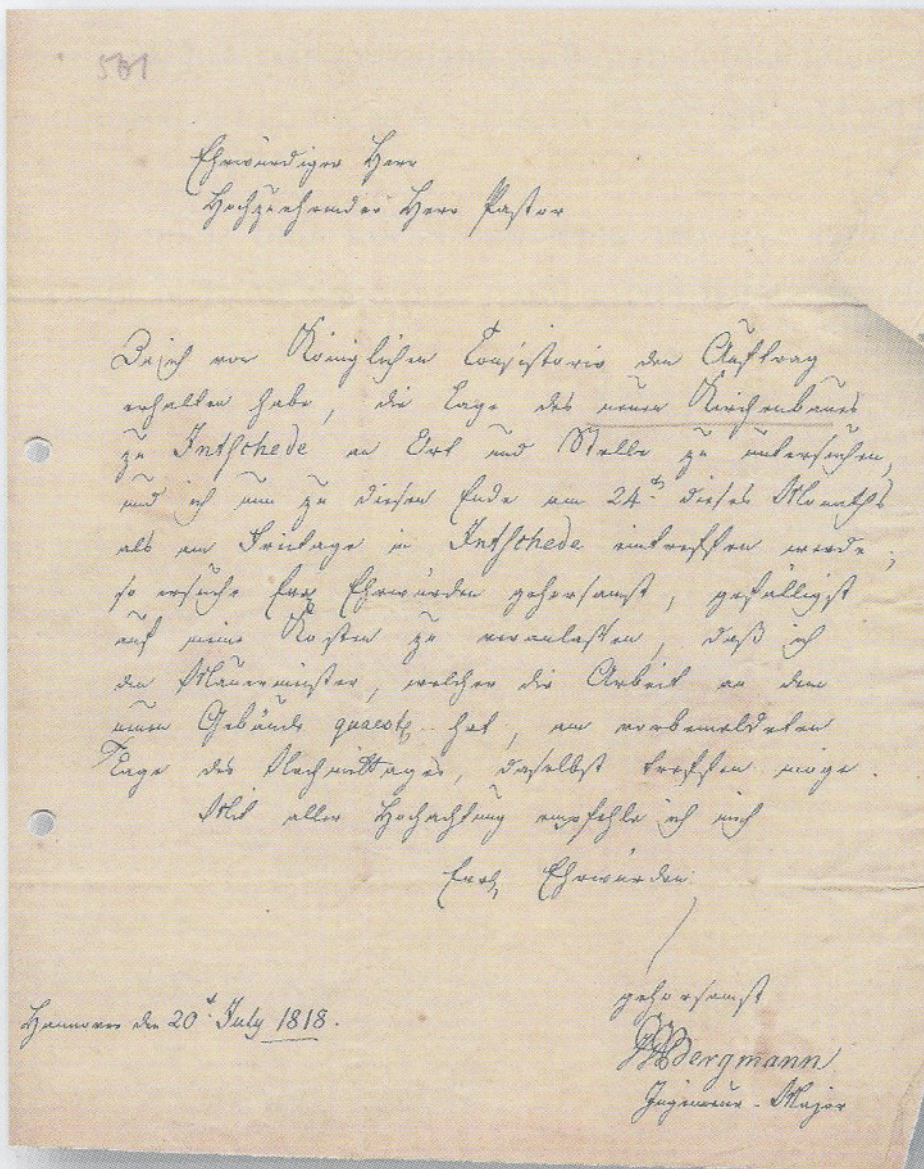 501
Ehrwürdiger Herr
Hochzuehrender Herr Pastor
Da ich von Königlichen Consistorio den Auftrag
erhalten habe, die Lage des neuen Kirchenbaues
zu Intschede an Ort und Stelle zu untersuchen,
und ich nun zu diesem Ende am 24t. dieses Monaths
als am Freitage in Intschede eintreffen werde;
so ersuche Ew. Ehrwürden gehorsamst, gefälligst
auf meine Kosten zu veranlaßen, daß ich
den Mauermeister, welcher die Arbeit an dem
neuen Gebäude quaest. hat, am vorbemeldeten
Tage des Nachmittages, daselbst treffen möge.
Mit aller Hochachtung empfehle ich mich
Ew. Ehrwürden
gehorsamst
Hannover den 20t. July 1818.
Bergmann
Ingenieur-Major